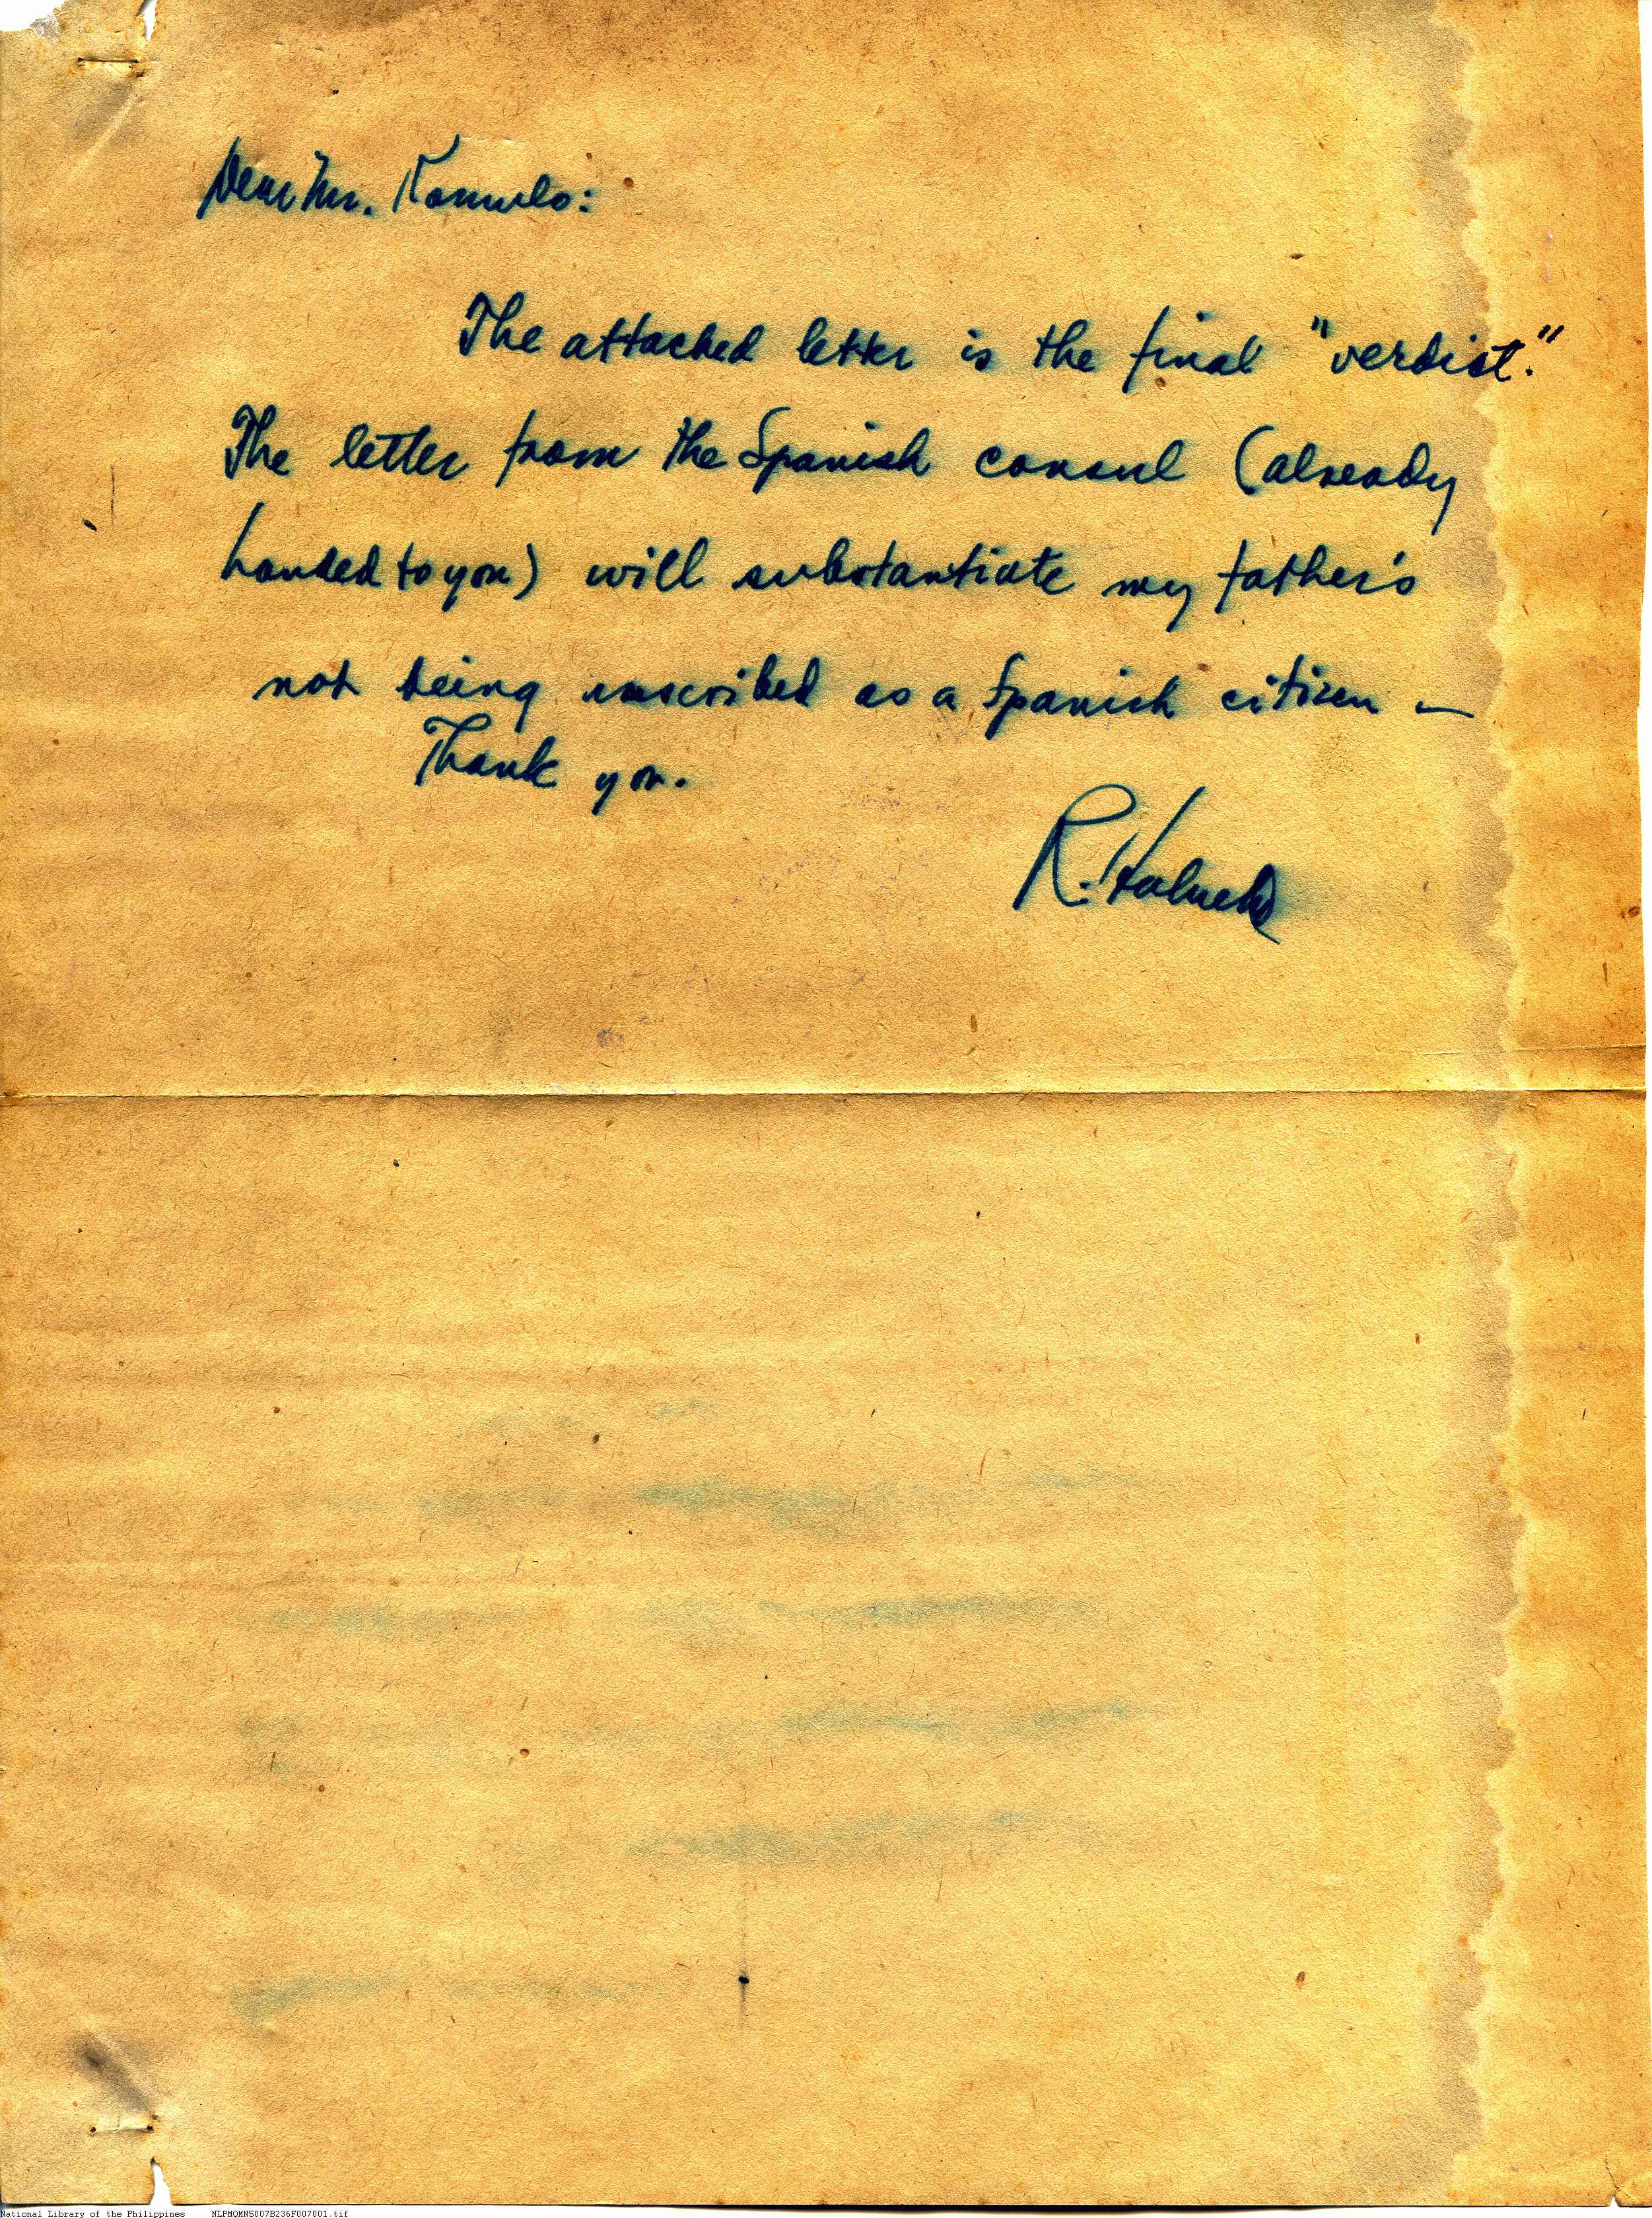 Dear Mr. Romulo:
The attached letter is the final "verdict."
The letter from the Spanish consul (already
handed to you) will substantiate my father's
not being inscribed as a Spanish citizen —
Thank you.
R.
National Library of the Philippines NLPMQMNS007B236F007001.tif